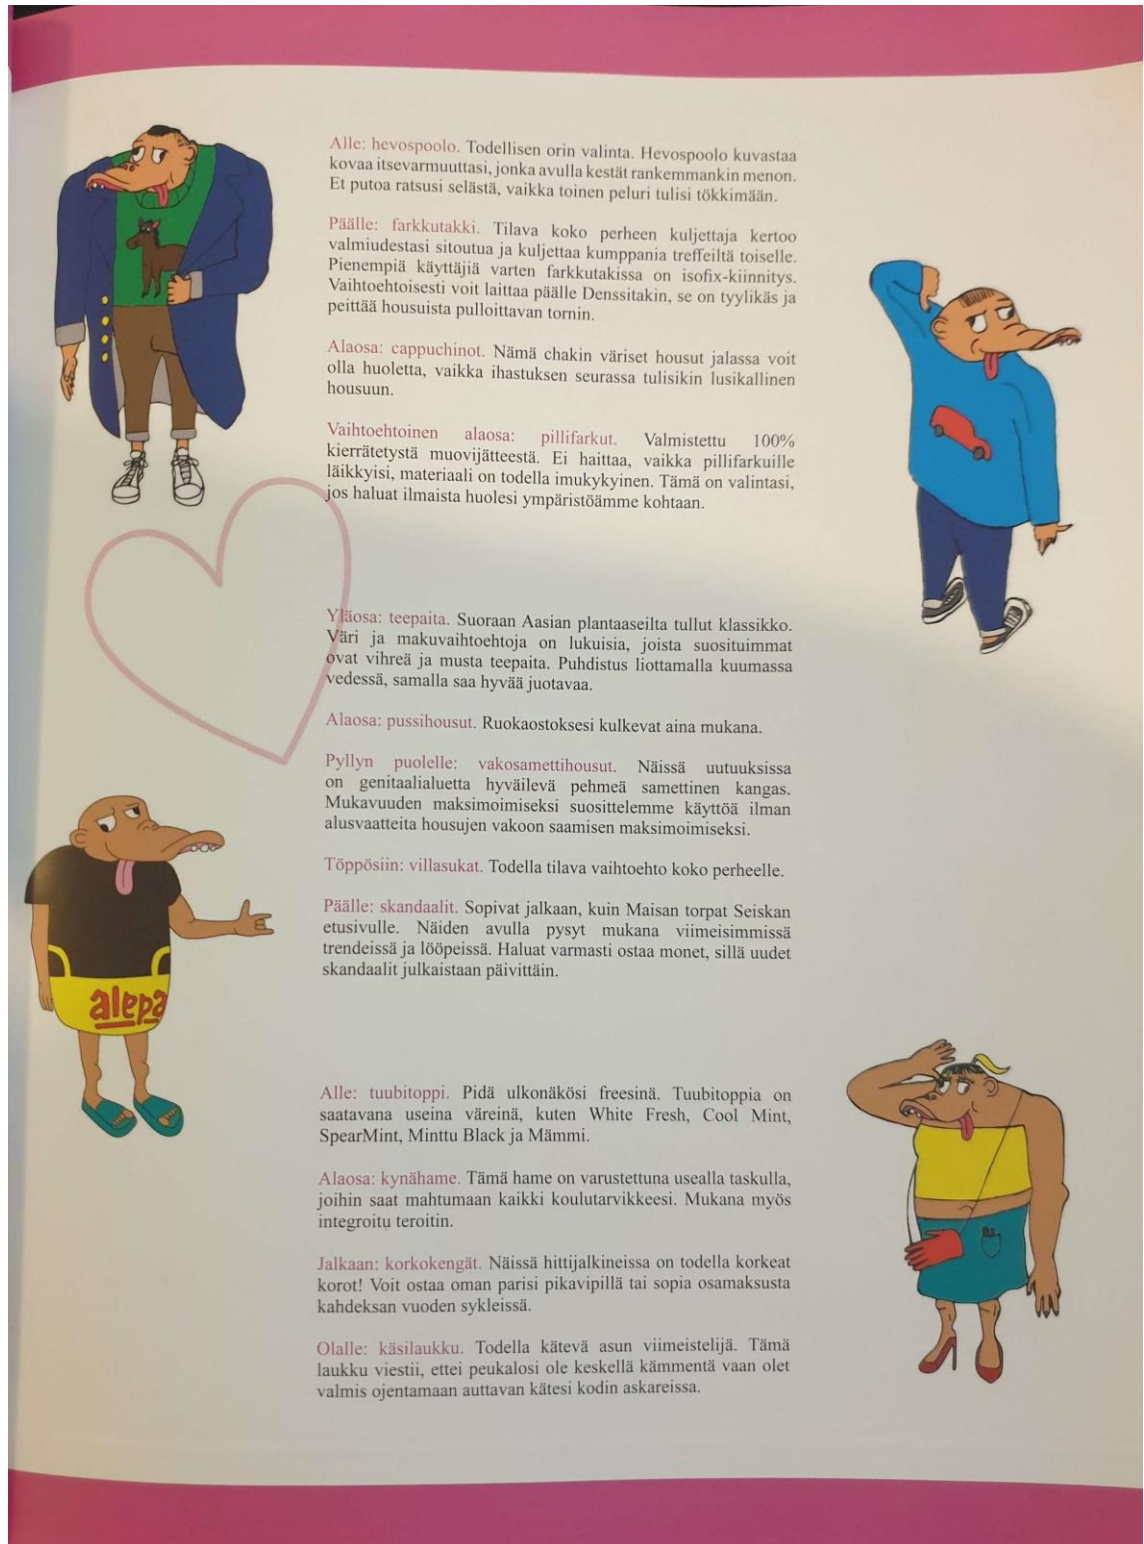 Alle: hevospoolo. Todellisen orin valinta. Hevospoolo kuvastaa
kovaa itsevarmuuttasi, jonka avulla kestät rankemmankin menon.
Et putoa ratsusi selästä, vaikka toinen peluri tulisi tökkimään.
Päälle: farkkutakki. Tilava koko perheen kuljettaja kertoo
valmiudestasi sitoutua ja kuljettaa kumppania treffeiltä toiselle.
Pienempiä käyttäjiä varten farkkutakissa on isofix-kiinnitys.
Vaihtoehtoisesti voit laittaa päälle Denssitakin, se on tyylikäs ja
peittää housuista pulloittavan tornin.
Alaosa: cappuchinot. Nämä chakin väriset housut jalassa voit
olla huoletta, vaikka ihastuksen seurassa tulisikin lusikallinen
housuun.
Vaihtoehtoinen alaosa: pillifarkut. Valmistettu 100%
kierrätetystä muovijätteestä. Ei haittaa, vaikka pillifarkuille
läikkyisi, materiaali on todella imukykyinen. Tämä on valintasi,
jos haluat ilmaista huolesi ympäristöämme kohtaan.
Yläosa: teepaita. Suoraan Aasian plantaaseilta tullut klassikko.
Väri ja makuvaihtoehtoja on lukuisia, joista suosituimmat
ovat vihreä ja musta teepaita. Puhdistus liottamalla kuumassa
vedessä, samalla saa hyvää juotavaa.
Alaosa: pussihousut. Ruokaostoksesi kulkevat aina mukana.
Pyllyn puolelle: vakosamettihousut. Näissä uutuuksissa
on genitaalialuetta hyväilevä pehmeä samettinen kangas.
Mukavuuden maksimoimiseksi suosittelemme käyttöä ilman
alusvaatteita housujen vakoon saamisen maksimoimiseksi.
Töppösiin: villasukat. Todella tilava vaihtoehto koko perheelle.
Päälle: skandaalit. Sopivat jalkaan, kuin Maisan torpat Seiskan
etusivulle. Näiden avulla pysyt mukana viimeisimmissä
trendeissä ja lööpeissä. Haluat varmasti ostaa monet, sillä uudet
skandaalit julkaistaan päivittäin.
alepa
Alle: tuubitoppi. Pidä ulkonäkösi freesinä. Tuubitoppia on
saatavana useina väreinä, kuten White Fresh, Cool Mint,
SpearMint, Minttu Black ja Mämmi.
Alaosa: kynähame. Tämä hame on varustettuna usealla taskulla,
joihin saat mahtumaan kaikki koulutarvikkeesi. Mukana myös
integroitu teroitin.
Jalkaan: korkokengät. Näissä hittijalkineissa on todella korkeat
korot! Voit ostaa oman parisi pikavipillä tai sopia osamaksusta
kahdeksan vuoden sykleissä.
Olalle: käsilaukku. Todella kätevä asun viimeistelijä. Tämä
laukku viestii, ettei peukalosi ole keskellä kämmentä vaan olet
valmis ojentamaan auttavan kätesi kodin askareissa.